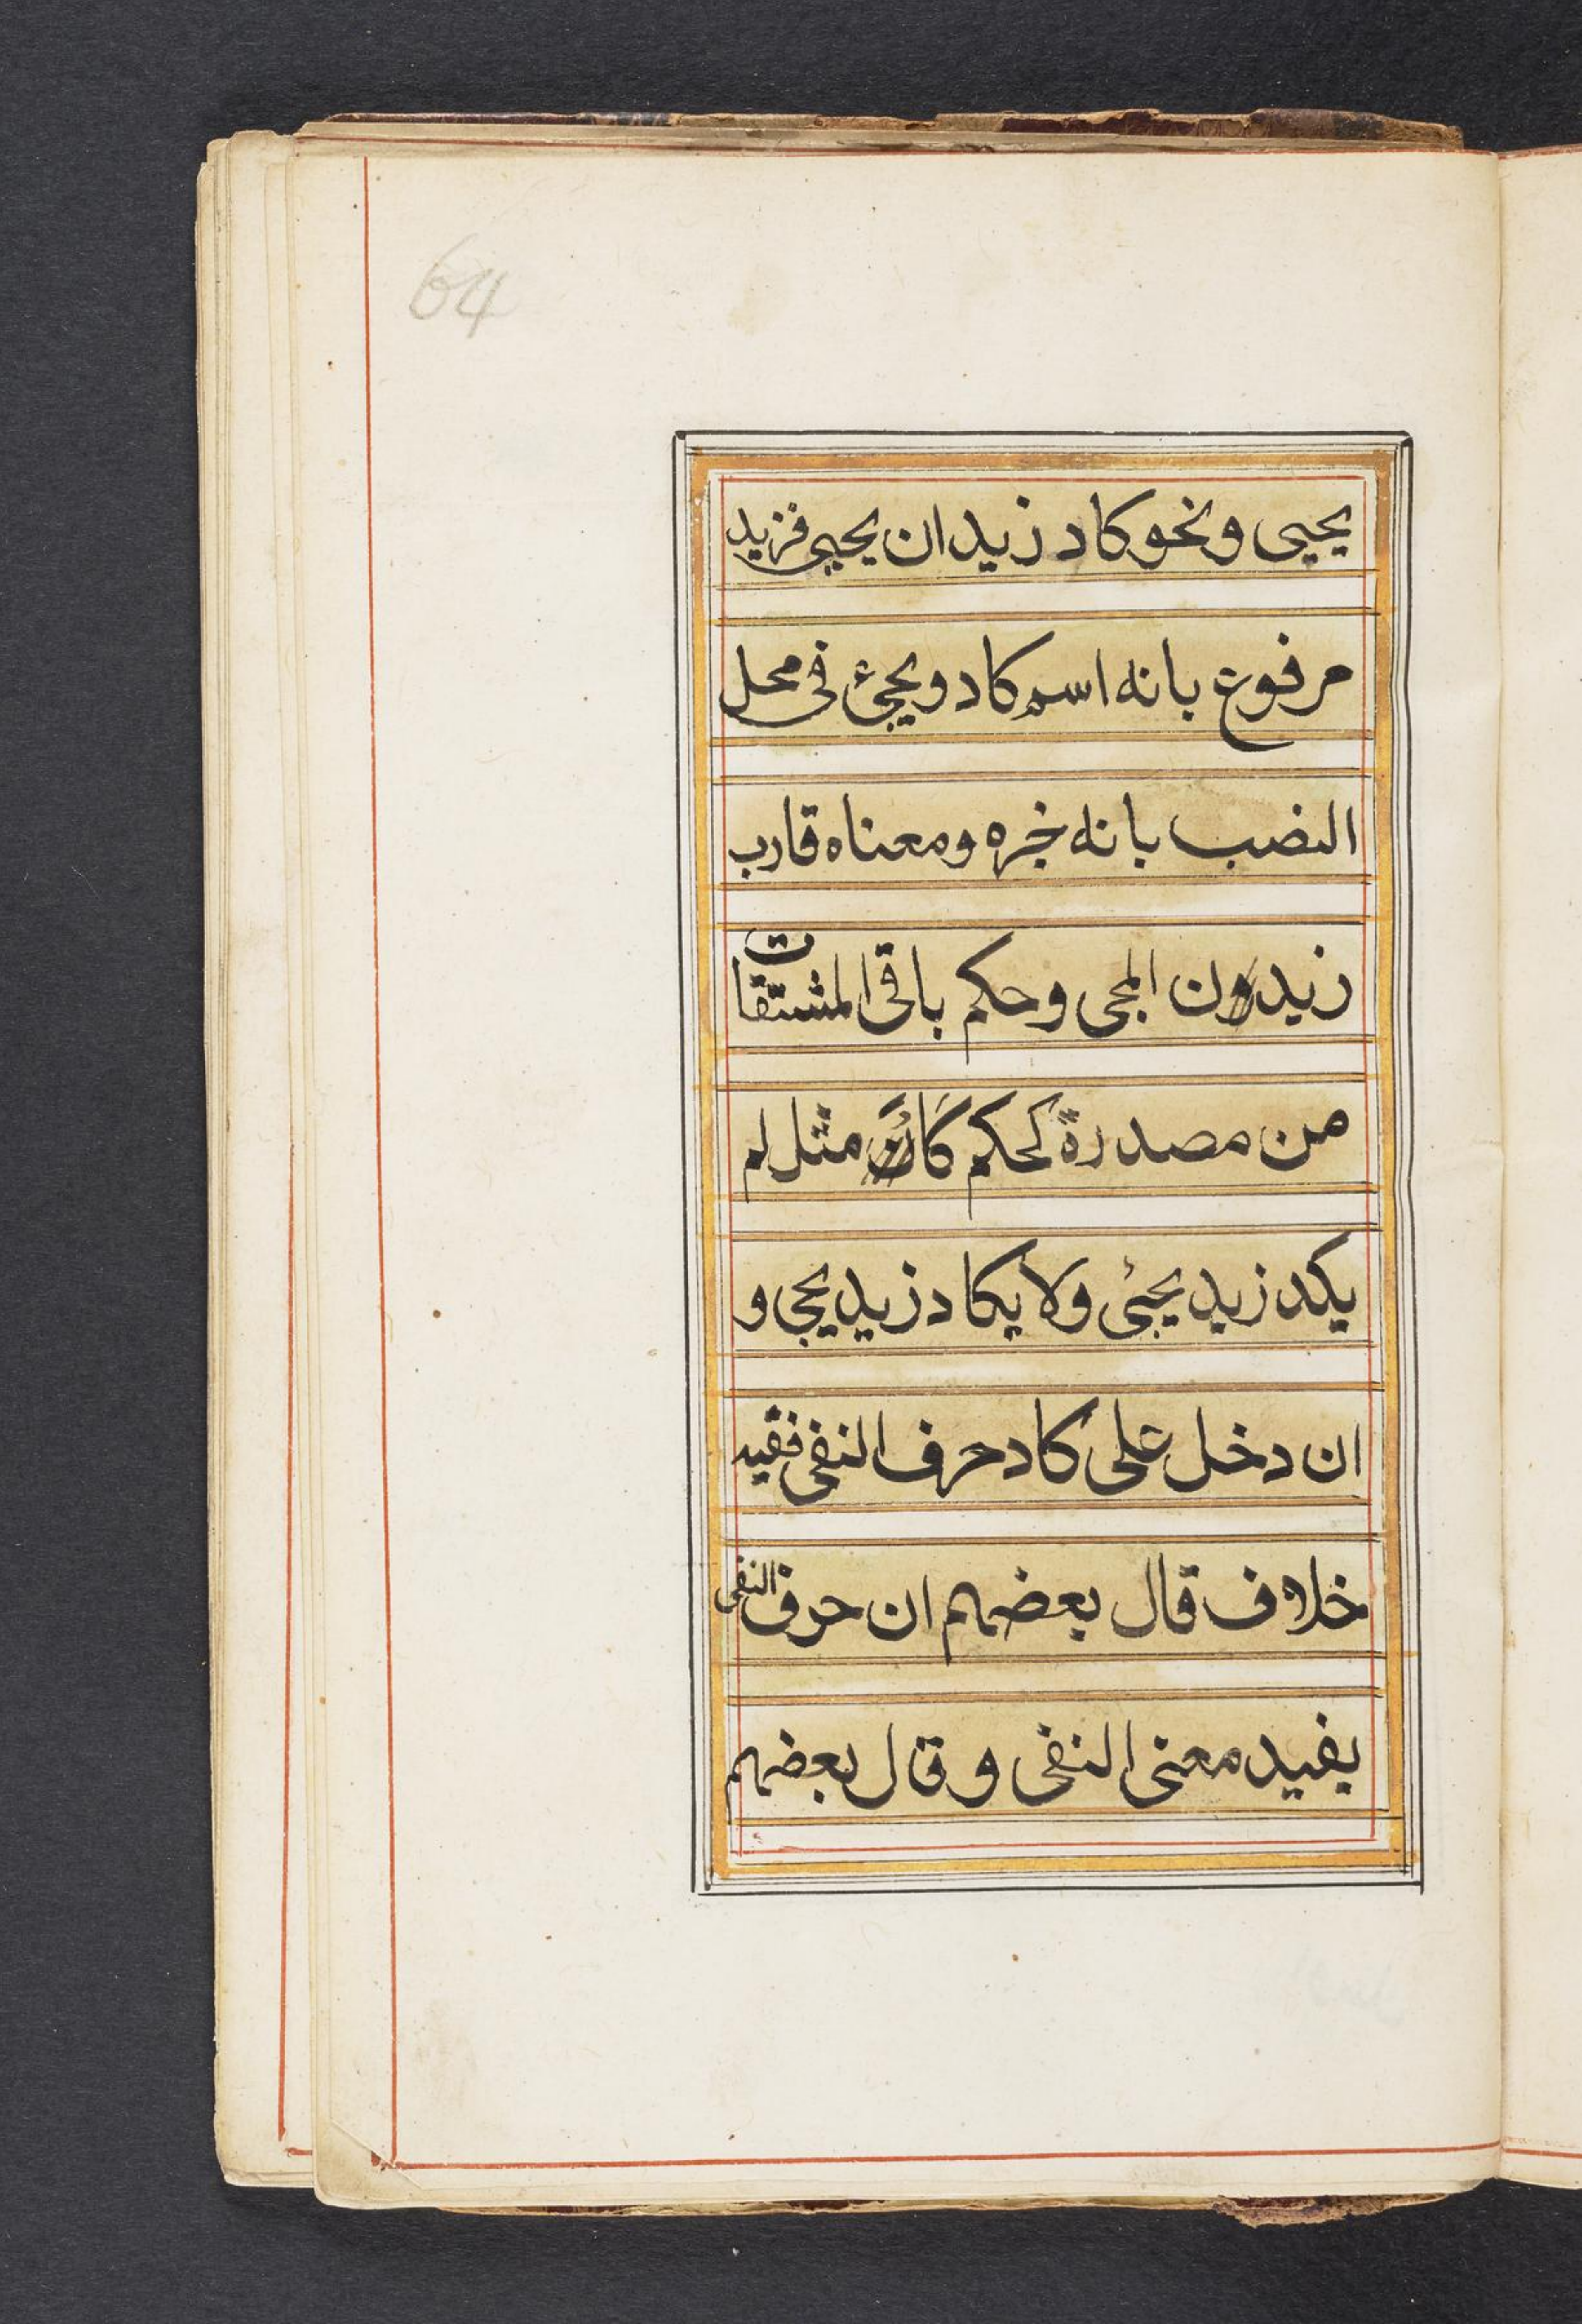 64
يحيى ونحو كاد زيد ان يحيى فزيد
مرفوع بانه اسم كاد ويجئ فى محل
النصب بانه خبره ومعناه قارب
زيد ون المجى وحكم باقى المشتقات
من مصدرة كحكم كاد مثل لم
يكد زيد يجئ ولا يكاد زيد يجى و
ان دخل على كاد حرف النفى ففيه
خلاف قال بعضهم ان حرف النفى
يفيد معنى النفى وقال بعضهم